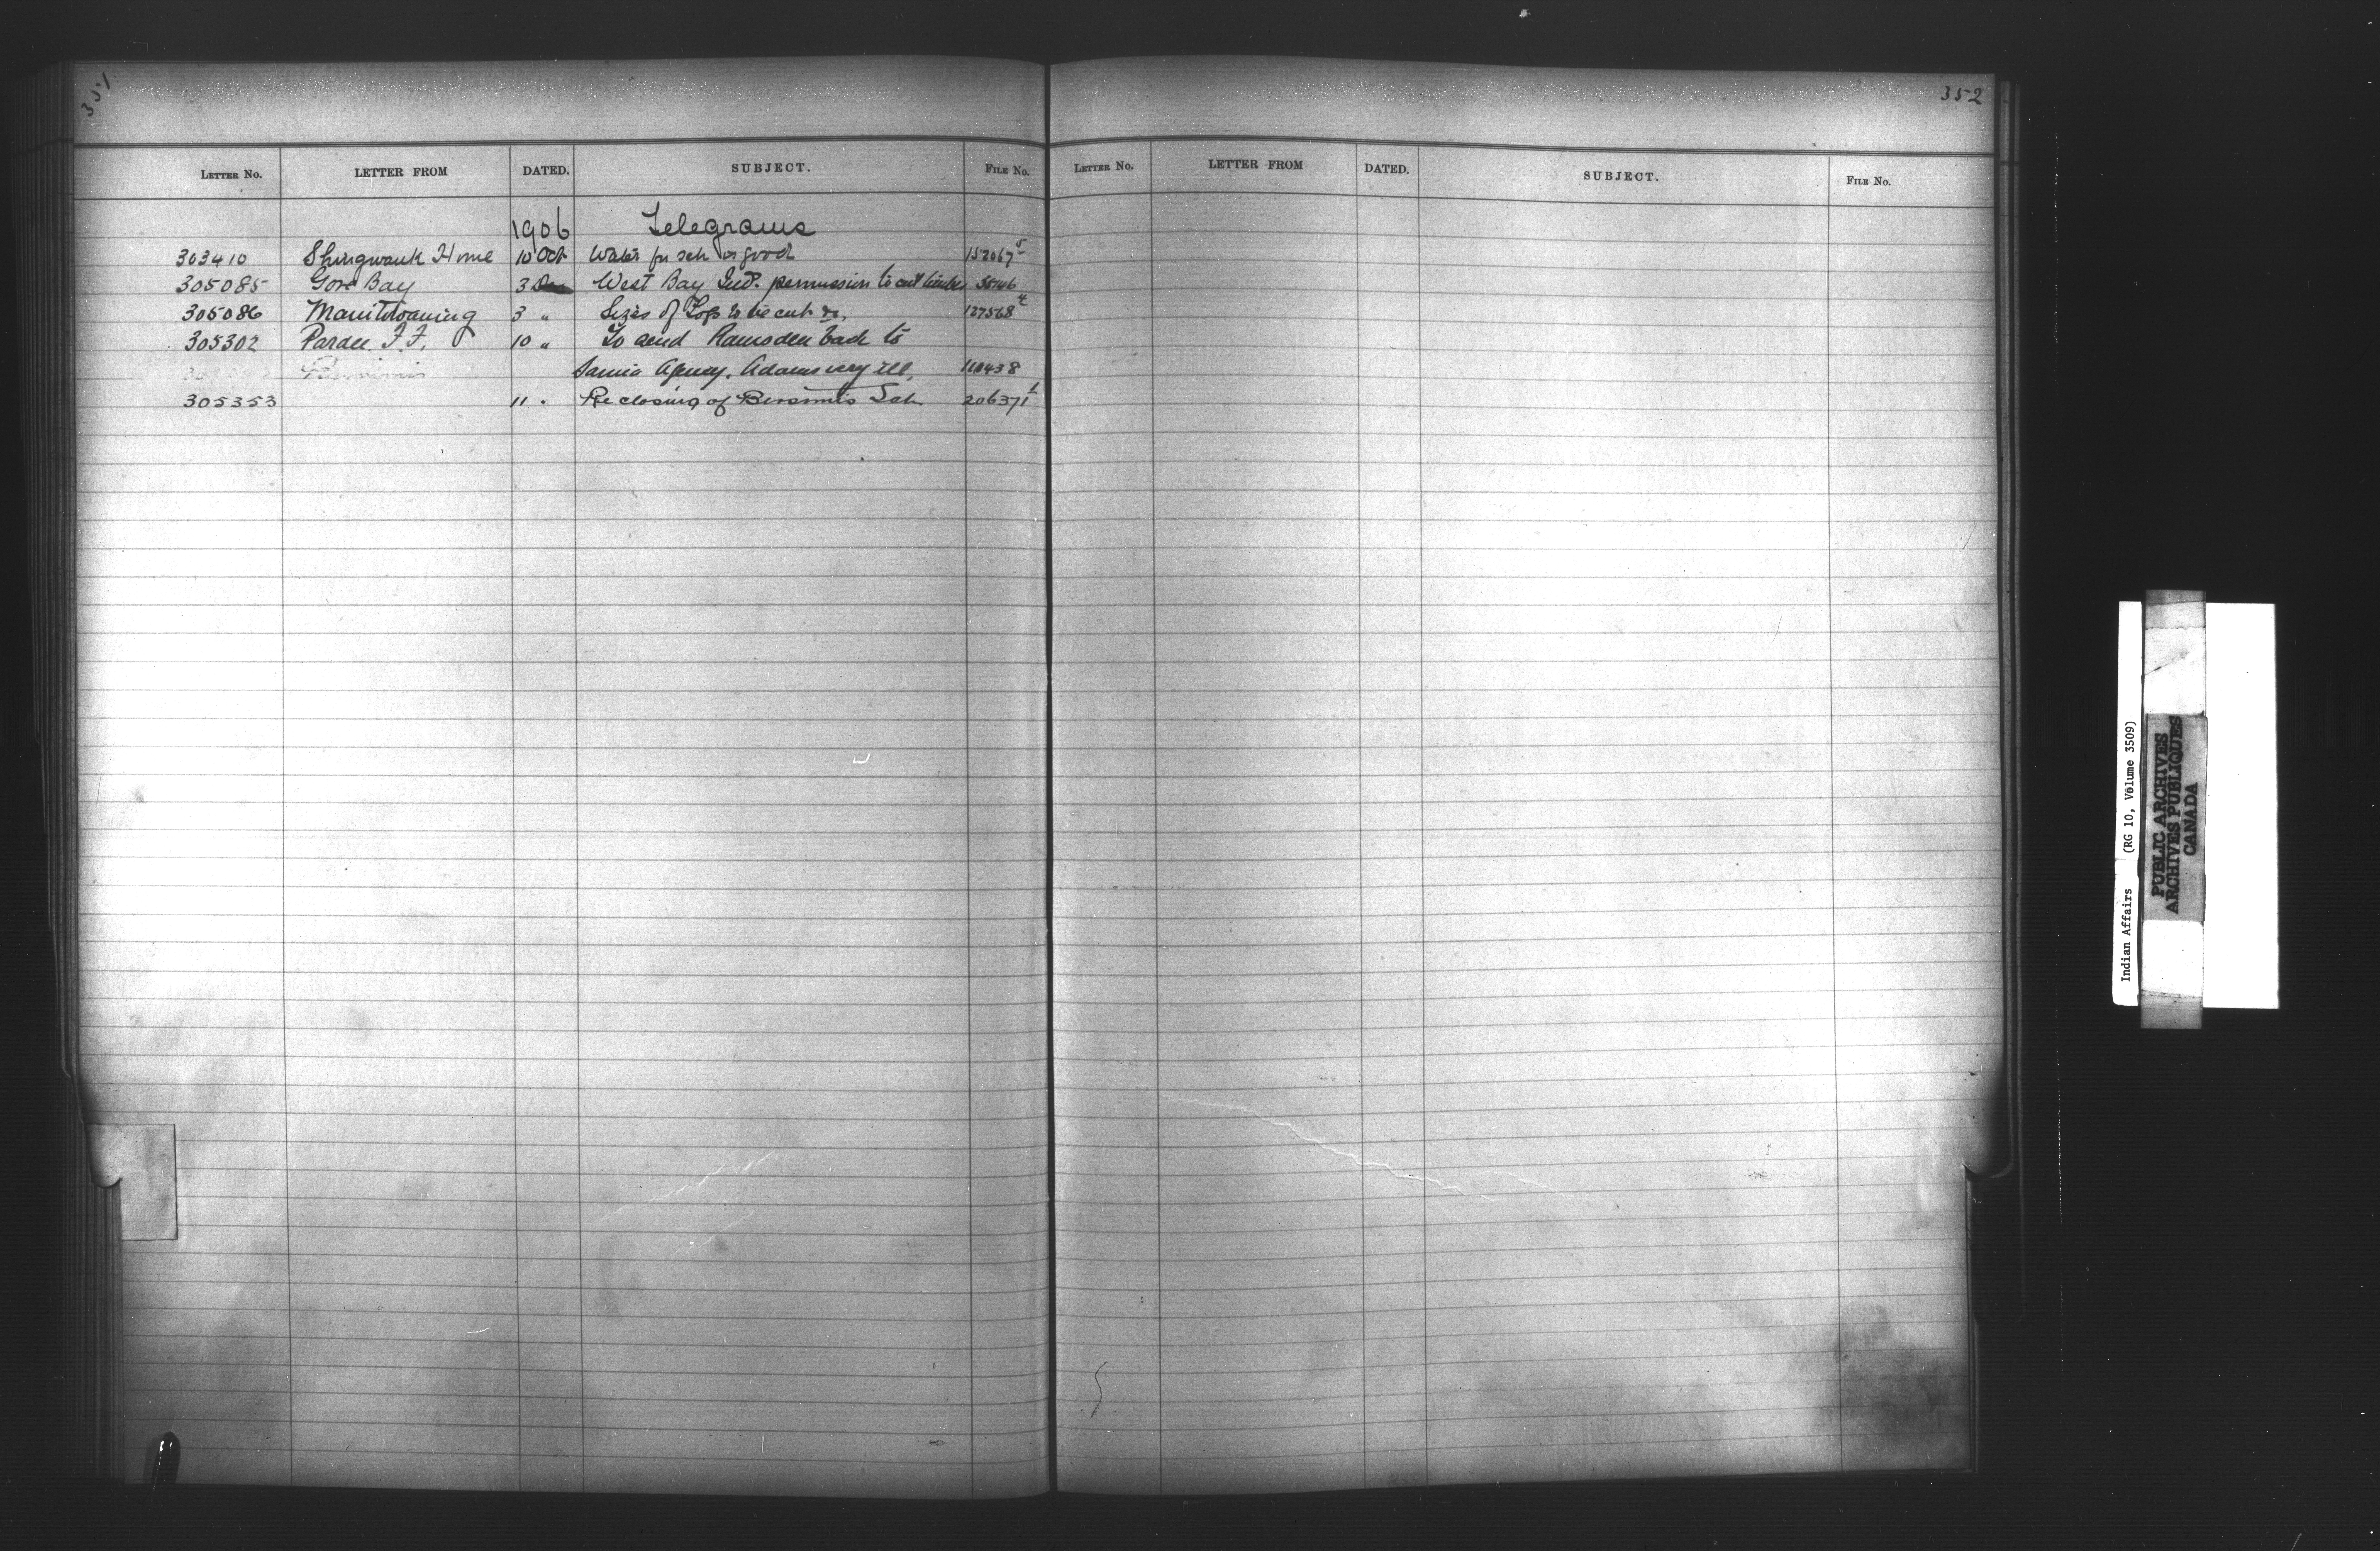 351
LETTER No. LETTER FROM DATED. SUBJECT. FILE No.
1906 Telegrams
303410 Shingwauk Home 10 Oct Water for sch is good 152067 5
305085 Gore Bay 3 West Bay Ind. permission to cut timber 35146
305086 Manitowaning 3 " Sizes of Logs to be cut &c. 127568 4
305302 Pardee F.F. 10 " To send Ramsden back to
Sarnia Agency. Adams very ill. 110438
305353 11 " Re closing of Bersimis Sch 206371 1
352
LETTER No. LETTER FROM DATED. SUBJECT. FILE No.
Indian Affairs (RG 10, Volume 3509)
PUBLIC ARCHIVES
ARCHIVES PUBLIQUES
CANADA